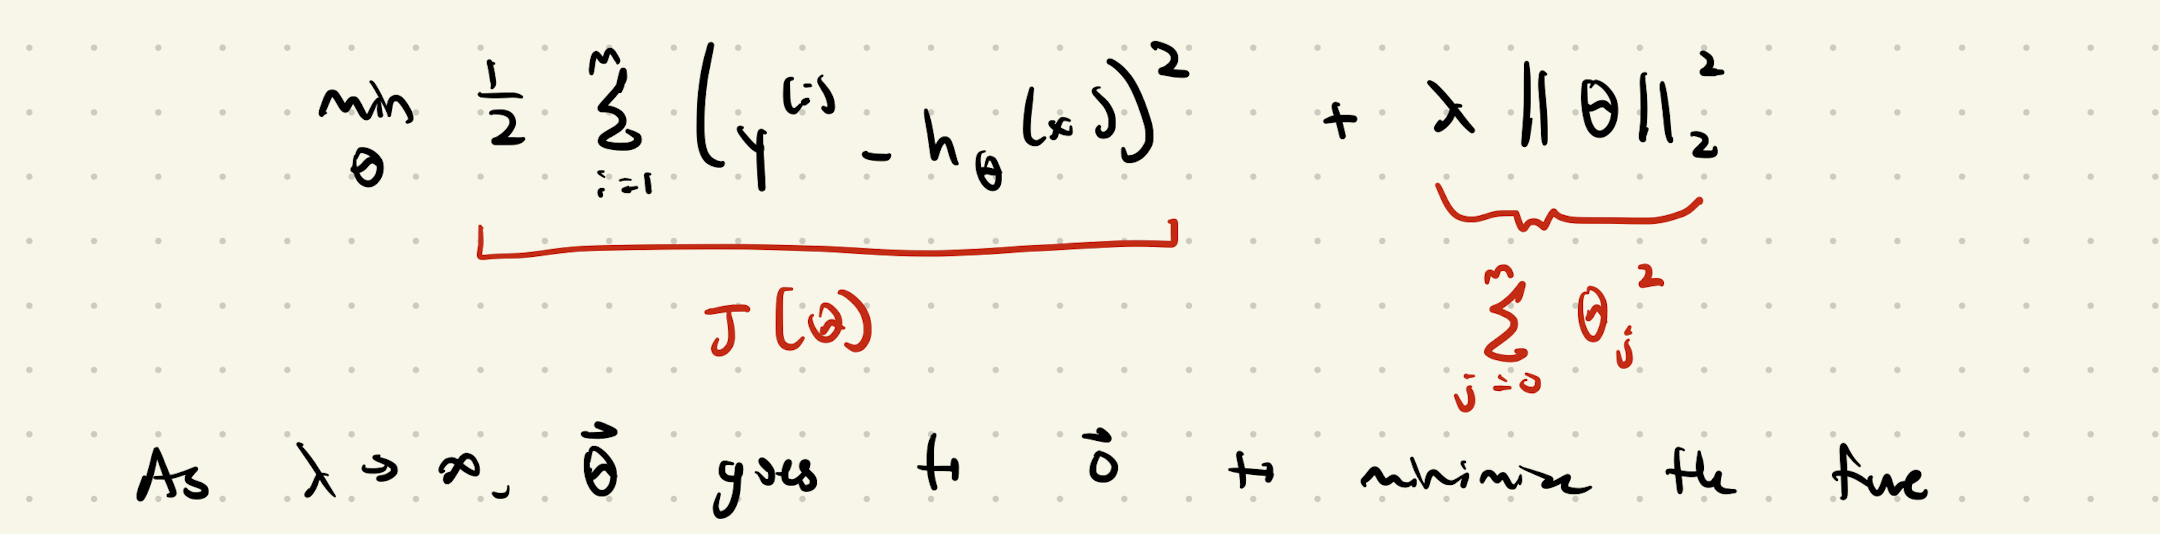 min θ 1/2 Σ_{i=1}^{m} (y^{(i)} - h_θ(x))^2 + λ ||θ||_2^2
J(θ) Σ_{j=0}^{n} θ_j^2
As λ → ∞, θ⃗ goes to 0⃗ to minimize the func